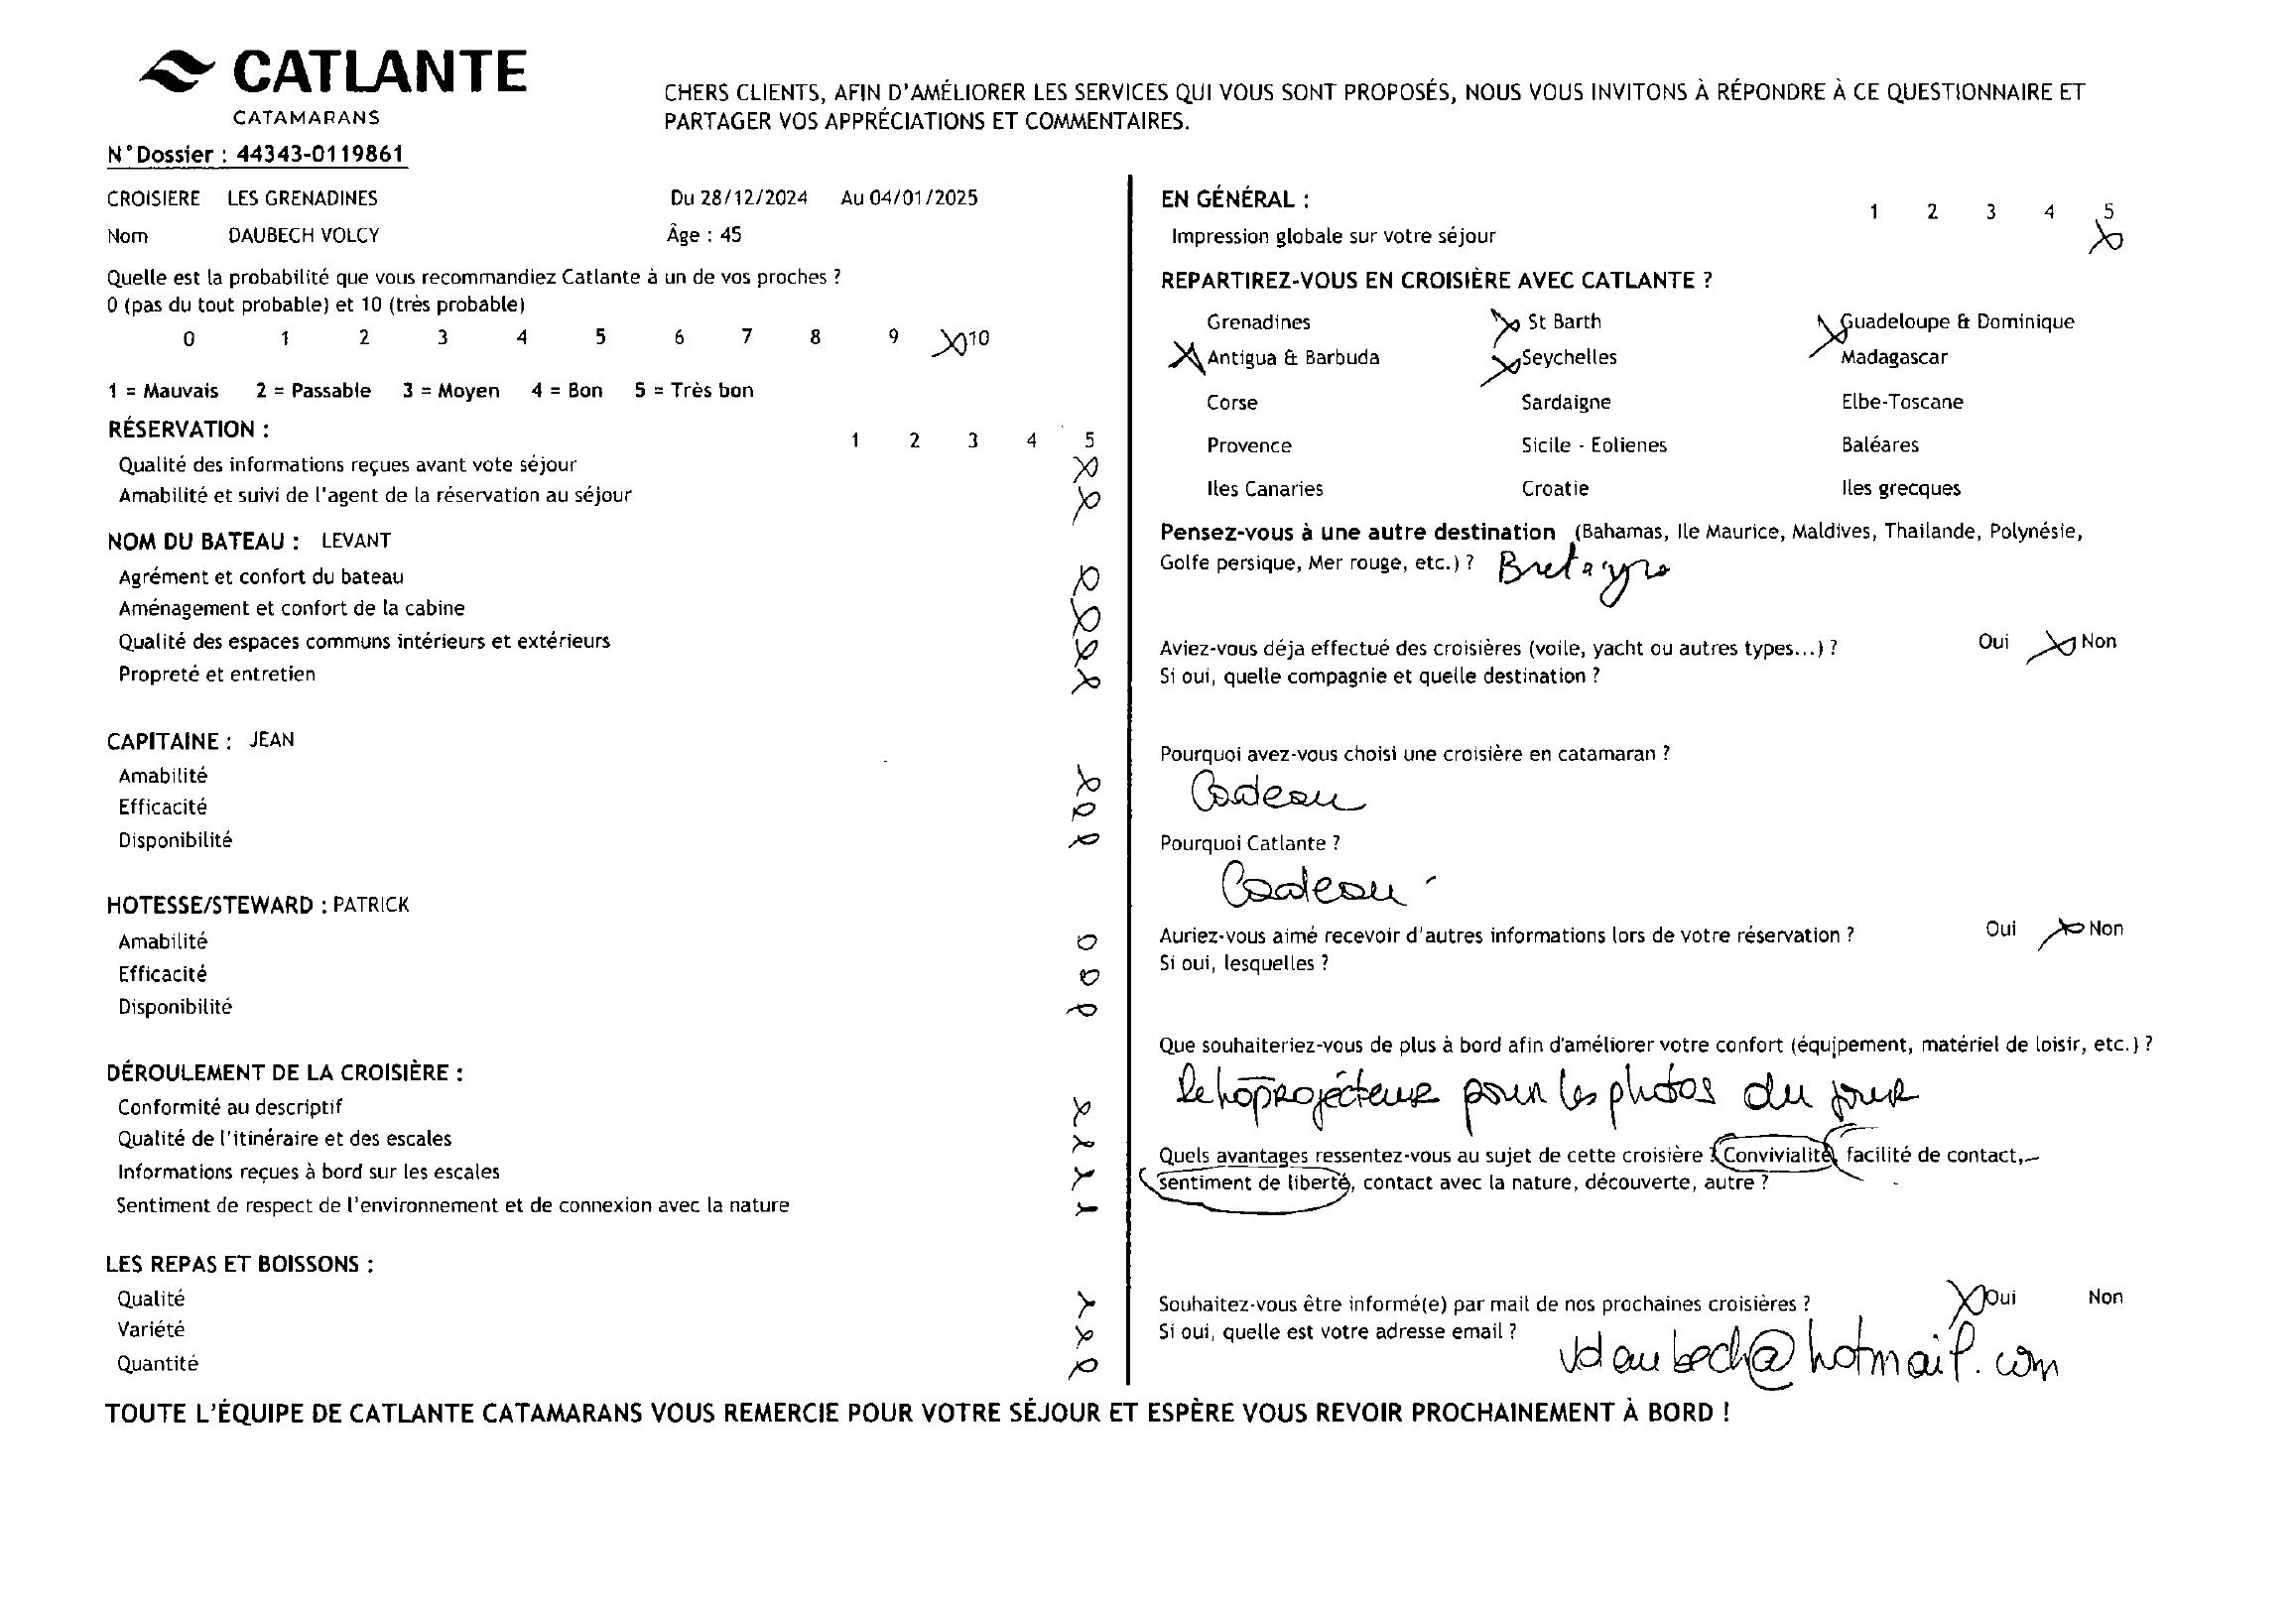 CATLANTE
CATAMARANS
CHERS CLIENTS, AFIN D'AMÉLIORER LES SERVICES QUI VOUS SONT PROPOSÉS, NOUS VOUS INVITONS À RÉPONDRE À CE QUESTIONNAIRE ET
PARTAGER VOS APPRÉCIATIONS ET COMMENTAIRES.
N°Dossier : 44343-0119861
CROISIERE LES GRENADINES Du 28/12/2024 Au 04/01/2025
Nom DAUBECH VOLCY Âge : 45
Quelle est la probabilité que vous recommandiez Catlante à un de vos proches ?
0 (pas du tout probable) et 10 (très probable)
0 1 2 3 4 5 6 7 8 9 10
1 = Mauvais 2 = Passable 3 = Moyen 4 = Bon 5 = Très bon
RÉSERVATION :
1 2 3 4 5
Qualité des informations reçues avant vote séjour
Amabilité et suivi de l'agent de la réservation au séjour
NOM DU BATEAU : LEVANT
Agrément et confort du bateau
Aménagement et confort de la cabine
Qualité des espaces communs intérieurs et extérieurs
Propreté et entretien
CAPITAINE : JEAN
Amabilité
Efficacité
Disponibilité
HOTESSE/STEWARD : PATRICK
Amabilité
Efficacité
Disponibilité
DÉROULEMENT DE LA CROISIÈRE :
Conformité au descriptif
Qualité de l'itinéraire et des escales
Informations reçues à bord sur les escales
Sentiment de respect de l'environnement et de connexion avec la nature
LES REPAS ET BOISSONS :
Qualité
Variété
Quantité
EN GÉNÉRAL :
1 2 3 4 5
Impression globale sur votre séjour
REPARTIREZ-VOUS EN CROISIÈRE AVEC CATLANTE ?
Grenadines St Barth Guadeloupe & Dominique
Antigua & Barbuda Seychelles Madagascar
Corse Sardaigne Elbe-Toscane
Provence Sicile - Eolienes Baléares
Iles Canaries Croatie Iles grecques
Pensez-vous à une autre destination (Bahamas, Ile Maurice, Maldives, Thailande, Polynésie,
Golfe persique, Mer rouge, etc.) ? Bretagne
Aviez-vous déja effectué des croisières (voile, yacht ou autres types...) ? Oui Non
Si oui, quelle compagnie et quelle destination ?
Pourquoi avez-vous choisi une croisière en catamaran ?
Cadeau
Pourquoi Catlante ?
Cadeau
Auriez-vous aimé recevoir d'autres informations lors de votre réservation ? Oui Non
Si oui, lesquelles ?
Que souhaiteriez-vous de plus à bord afin d'améliorer votre confort (équipement, matériel de loisir, etc.) ?
pour les photos du jour
Quels avantages ressentez-vous au sujet de cette croisière ? Convivialité, facilité de contact,
sentiment de liberté, contact avec la nature, découverte, autre ?
Souhaitez-vous être informé(e) par mail de nos prochaines croisières ? Oui Non
Si oui, quelle est votre adresse email ?
vdaubech@hotmail.com
TOUTE L'ÉQUIPE DE CATLANTE CATAMARANS VOUS REMERCIE POUR VOTRE SÉJOUR ET ESPÈRE VOUS REVOIR PROCHAINEMENT À BORD !